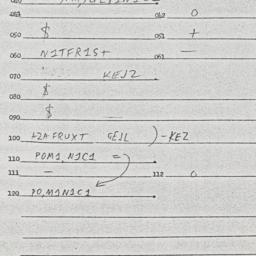 050 $ 051 +
060 NITFRIS+ 061 —
070 KEJZ
080 $
090 $
100 GEJL ) -KEZ
110 POM1, N1C1 =
111 — 112 0
120 PO, M1N1C1